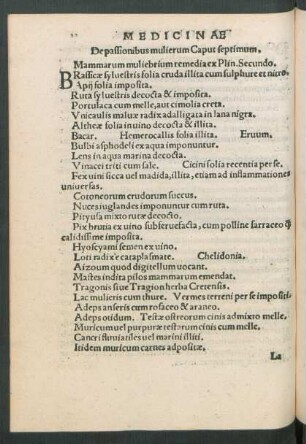 MEDICINAE
De passionibus mulierum Caput septimum.
Mammarum muliebrium remedia ex Plin. Secundo.
BRassicæ syluestris folia cruda illita cum sulphure et nitro.
Apij folia imposita.
Ruta syluestris decocta & imposita.
Portulaca cum melle, aut cimolia creta.
Vnicaulis maluæ radix adalligata in lana nigra.
Altheæ folia in uino decocta & illita.
Bacar. Hemerocallis folia illita. Eruum.
Bulbi asphodeli ex aqua imponuntur.
Lens in aqua marina decocta.
Vinacei triti cum sale. Cicini folia recentia per se.
Fex uini sicca uel madida, illita, etiam ad inflammationes
uniuersas.
Cotoneorum crudorum succus.
Nuces iuglandes imponuntur cum ruta.
Pityusa mixto rutæ decocto.
Pix brutia ex uino subferuefacta, cum polline farraceo q̃
calidissime imposita.
Hyoscyami semen ex uino.
Loti radix è cataplasmate. Chelidonia.
Aizoum quod digitellum uocant.
Mastes indita pilos mammarum emendat.
Tragonis siue Tragion herba Cretensis.
Lac mulieris cum thure. Vermes terreni per se impositi
Adeps anseris cum rosaceo & araneo.
Adeps otidum. Testæ ostreorum cinis admixto melle.
Muricum uel purpuræ testarum cinis cum melle.
Cancri fluuiatiles uel marini illiti.
Itidem muricum carnes adpositæ.
La